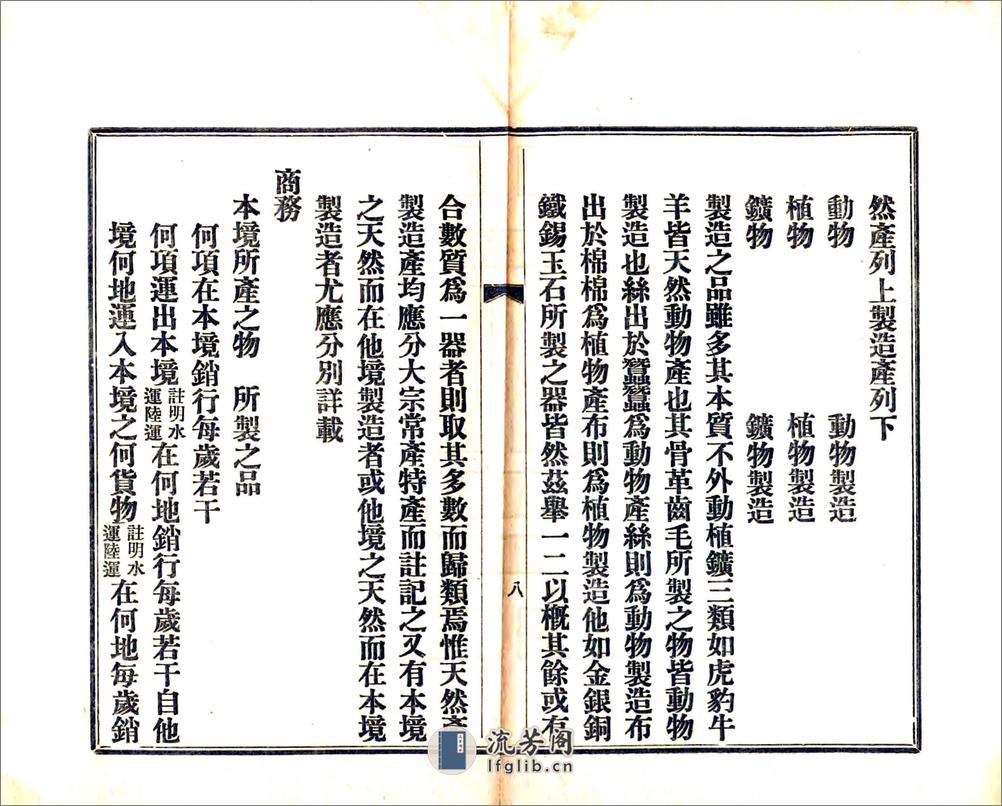 然產列上製造產列下
動物　動物製造
植物　植物製造
鑛物　鑛物製造
製造之品雖多其本質不外動植鑛三類如虎豹牛
羊皆天然動物產也其骨革齒毛所製之物皆動物
製造也絲出於蠶蠶爲動物產絲則爲動物製造布
出於棉棉爲植物產布則爲植物製造他如金銀銅
鐵錫玉石所製之器皆然茲舉一二以概其餘或有
八
合數質爲一器者則取其多數而歸類焉惟天然產
製造產均應分大宗常產特產而註記之又有本境
之天然而在他境製造者或他境之天然而在本境
製造者尤應分別詳載
商務
本境所產之物　所製之品
何項在本境銷行每歲若干
何項運出本境註明水運陸運在何地銷行每歲若干自他
境何地運入本境之何貨物註明水運陸運在何地每歲銷
流芳閣
lfglib.cn